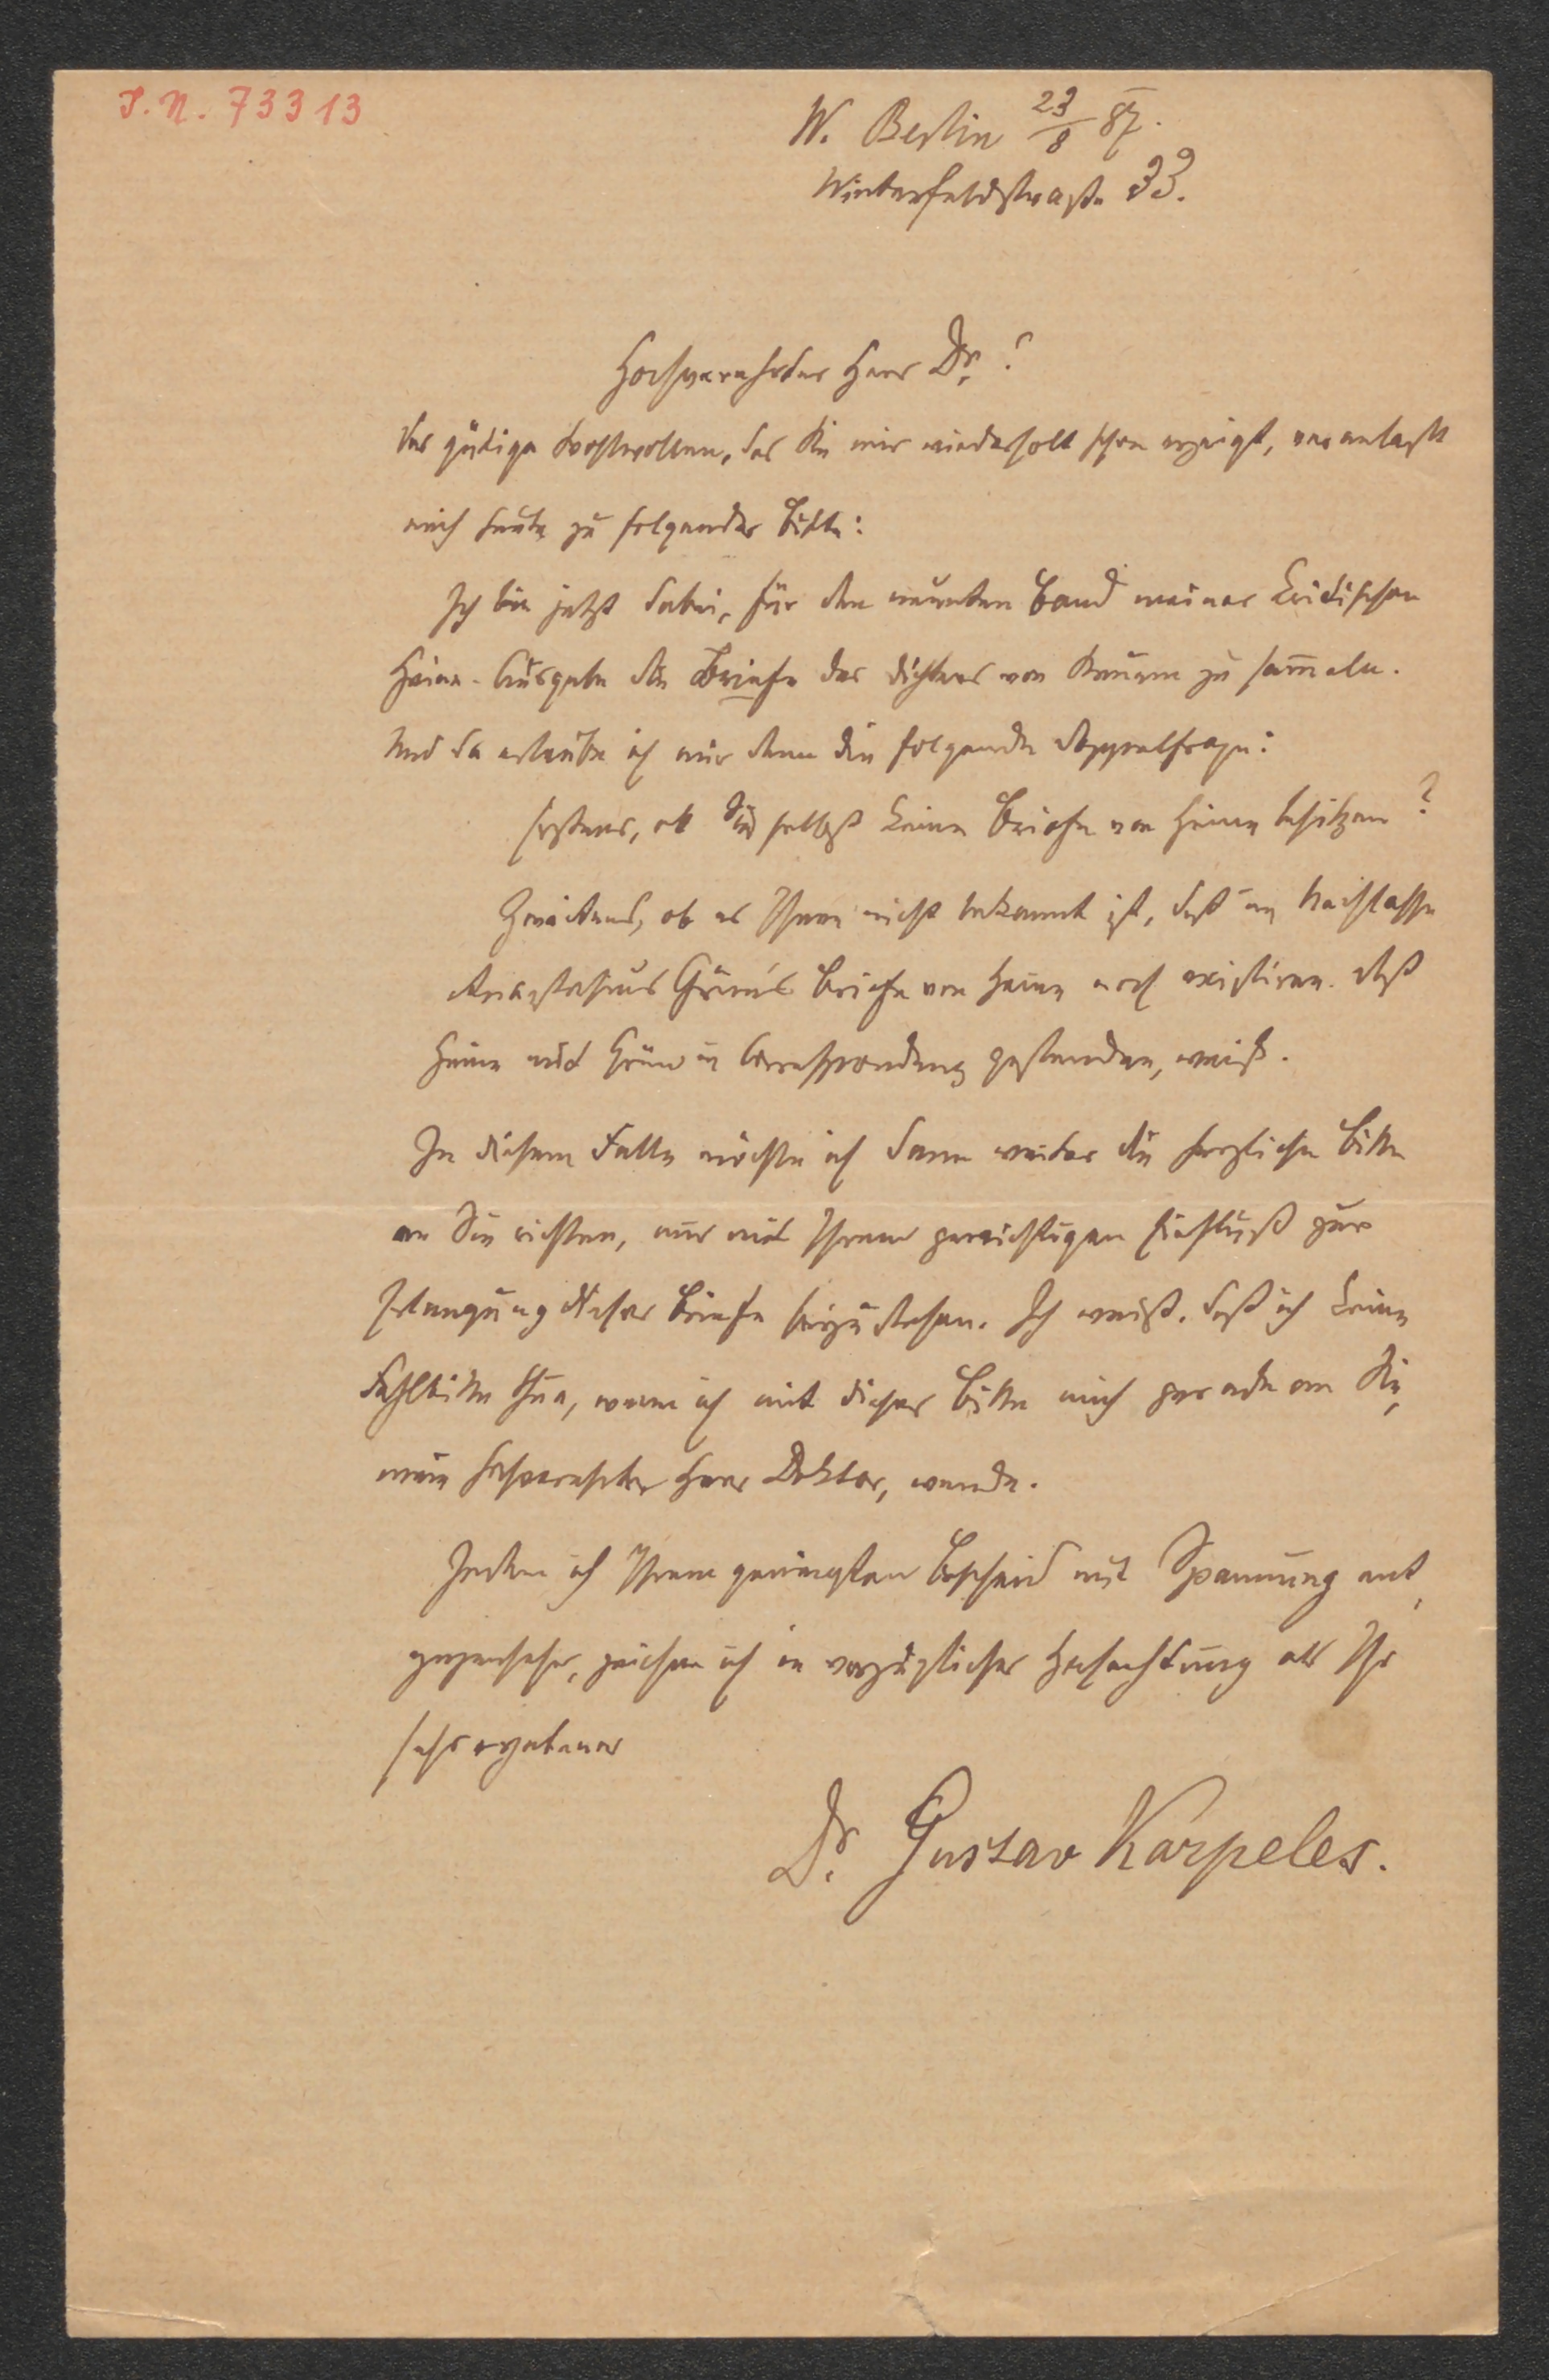 I. N. 73313
W. Berlin 23/8 87.
Winterfeldstraße 33.
Hochverehrter Herr Dr.!
Das gütige Wohlwollen, das Sie mir wiederholt schon erzeigt, veranlaßt
mich heute zu folgender Bitte:
Ich bin jetzt dabei, für den neunten Band meiner kritischen
Heine-Ausgabe die Briefe des Dichters von Neuem zu sam̅eln.
Und da erlaube ich mir denn die folgende Doppelfrage:
Erstens, ob Sie selbst keine Briefe von Heine besitzen?
Zweitens, ob es Ihnen nicht bekannt ist, daß im Nachlasse
Anastasius Grün's Briefe von Heine noch existiren. Daß
Heine mit Grün in Correspondenz gestanden, weiß.
In diesem Falle möchte ich dann weiter die herzliche Bitte
an Sie richten, mir mit Ihrem gewichtigen Einfluß zur
Erlangung dieser Briefe beizustehen. Ich weiß, daß ich keine
Fehlbitte thue, wenn ich mit dieser Bitte mich gerade an Sie,
mein hochverehrter Herr Doktor, wende.
Indem ich Ihrem geneigten Bescheid mit Spannung ent-
gegensehe, zeichne ich in vorzüglicher Hochachtung als Ihr
sehr ergebener
Dr. Gustav Karpeles.